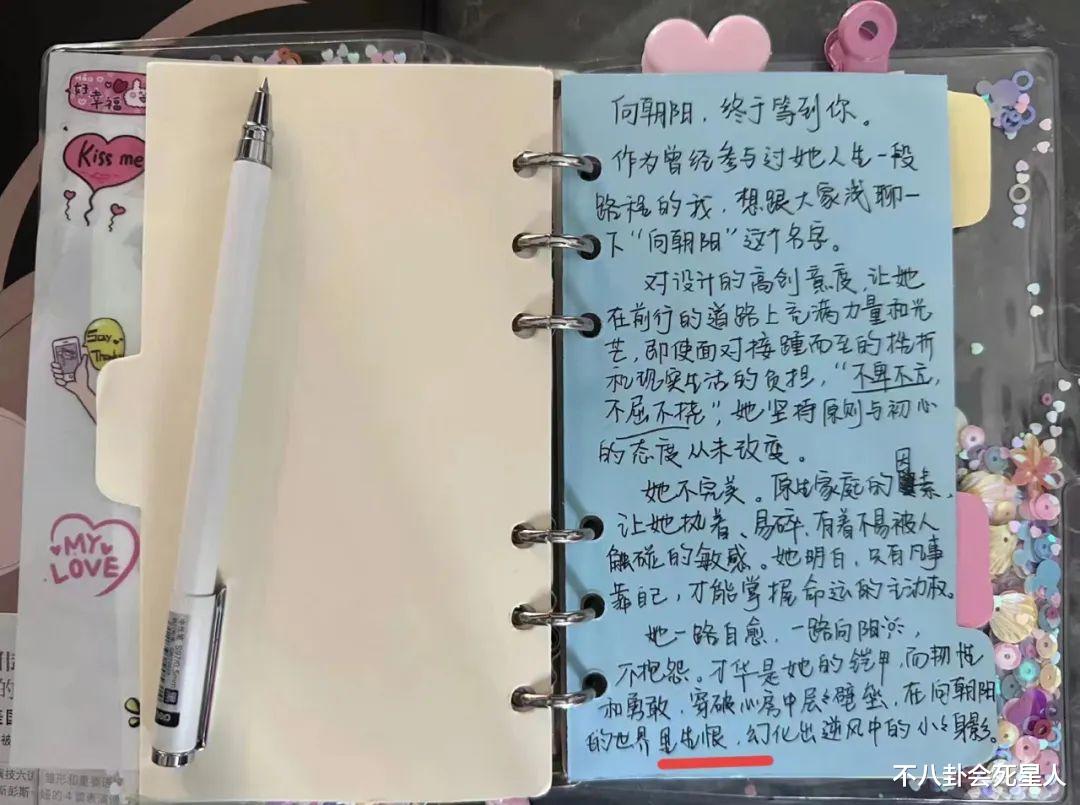 好幸福
Kiss me
Say
MY
LOVE
向朝阳，终于等到你。
作为曾经参与过她人生一段
路程的我，想跟大家浅聊一
下“向朝阳”这个名字。
对设计的高创意度，让她
在前行的道路上充满力量和光
芒，即使面对接踵而至的挫折
和现实生活的负担，“不卑不亢，
不屈不挠”，她坚持原则与初心
的态度从未改变。
她不完美。原生家庭的因素，
让她执着、易碎、有着不易被人
触碰的敏感。她明白，只有凡事
靠自己，才能掌握命运的主动权。
她一路自愈，一路向阳，
不抱怨。才华是她的铠甲，而韧性
和勇敢，穿破心房中层层壁垒，在向朝阳
的世界里生根，幻化出逆风中的小小身影。
不八卦会死星人